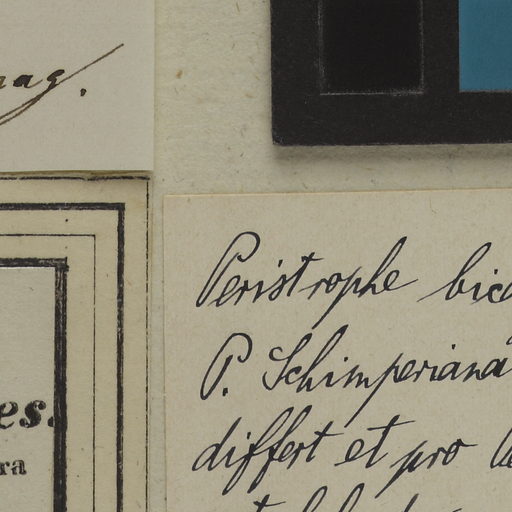 es.
ra
Peristrophe bic
P. Schimperiana
differt et pro